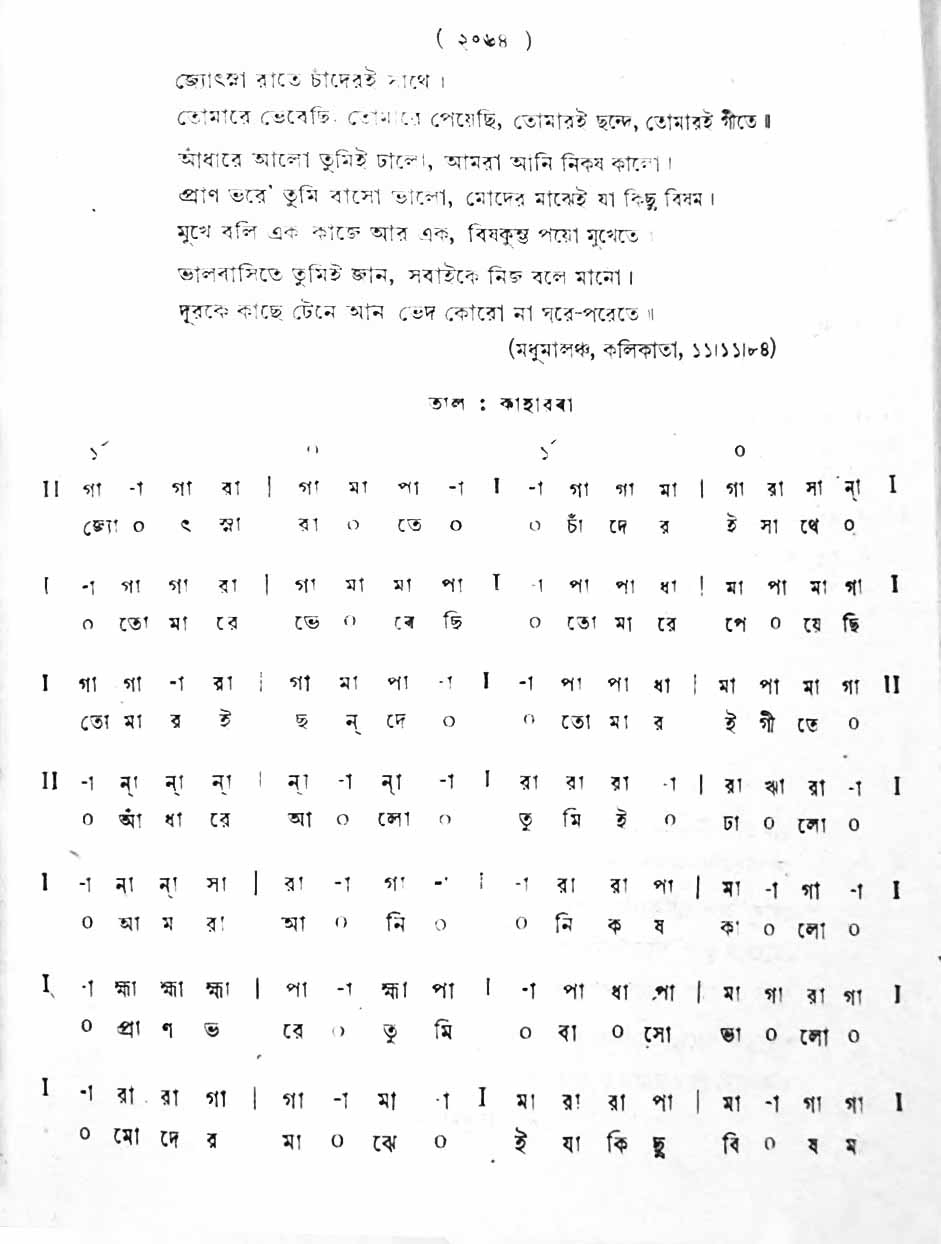 ( ২০৬৪ )
জ্যোৎস্না রাতে চাঁদেরই সাথে ।
তোমারে ভেবেছি তোমারে পেয়েছি, তোমারই ছন্দে, তোমারই গীতে ॥
আঁধারে আলো তুমিই ঢালো, আমরা আনি নিকষ কালো ।
প্রাণ ভরে' তুমি বাসো ভালো, মোদের মাঝেই যা কিছু বিষম ।
মুখে বলি এক কাজে আর এক, বিষকুম্ভ পয়ো মুখেতে ।
ভালবাসিতে তুমিই জান, সবাইকে নিজ বলে মানো ।
দূরকে কাছে টেনে আন ভেদ কোরো না ঘরে-পরেতে ॥
(মধুমালঞ্চ, কলিকাতা, ১১।১১।৮৪)
তাল : কাহারবা
১´ ০ ১´ ০
II গা -া গা রা | গা মা পা -া I -া গা গা মা | গা রা সা ন্া I
জ্যো ০ ৎ স্না রা ০ তে ০ ০ চাঁ দে র ই সা থে ০
I -া গা গা রা | গা মা মা পা I -া পা পা ধা | মা পা মা গা I
০ তো মা রে ভে ০ বে ছি ০ তো মা রে পে ০ য়ে ছি
I গা গা -া রা | গা মা পা -া I -া পা পা ধা | মা পা মা গা II
তো মা র ই ছ ন্ দে ০ ০ তো মা র ই গী তে ০
II -া ন্া ন্া ন্া | ন্া -া ন্া -া I রা রা রা -া | রা ঋা রা -া I
০ আঁ ধা রে আ ০ লো ০ তু মি ই ০ ঢা ০ লো ০
I -া ন্া ন্া সা | রা -া গা -া I -া রা রা পা | মা -া গা -া I
০ আ ম রা আ ০ নি ০ ০ নি ক ষ কা ০ লো ০
I -া হ্মা হ্মা হ্মা | পা -া হ্মা পা I -া পা ধা পা | মা গা রা গা I
০ প্রা ণ ভ রে ০ তু মি ০ বা ০ সো ভা ০ লো ০
I -া রা রা গা | গা -া মা -া I মা রা রা পা | মা -া গা গা I
০ মো দে র মা ০ ঝে ০ ই যা কি ছু বি ০ ষ ম